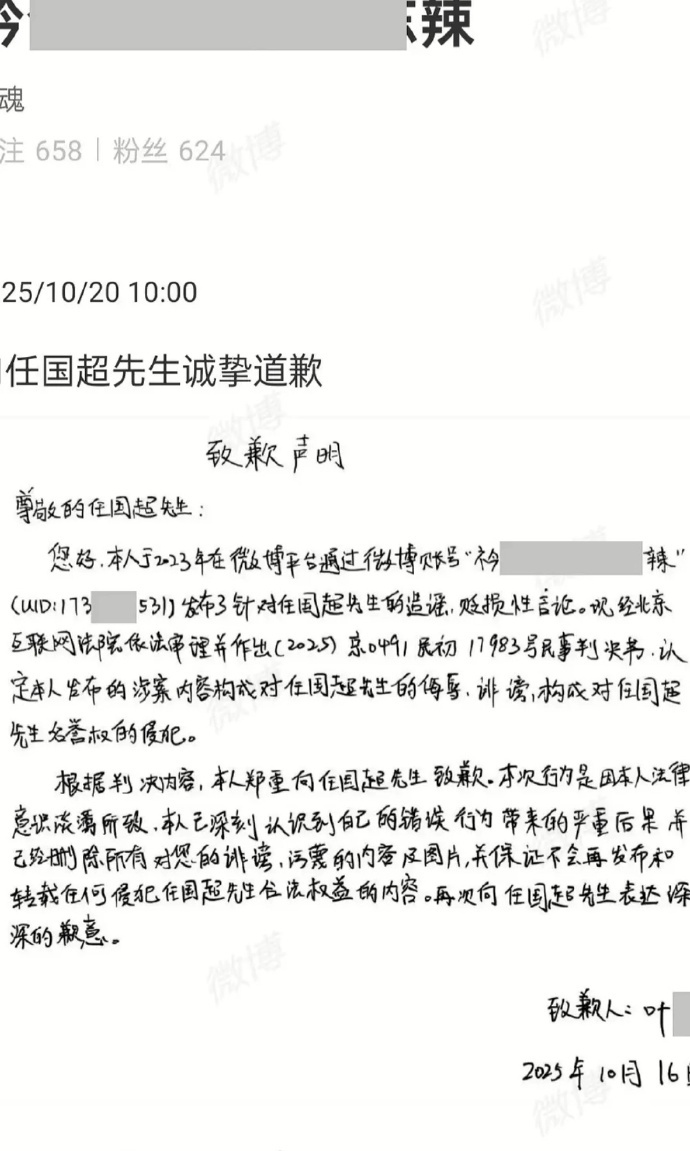 辣
魂
注 658 | 粉丝 624
25/10/20 10:00
任国超先生诚挚道歉
致歉声明
尊敬的任国超先生:
您好,本人于2023年在微博平台通过微博账号“衿 辣”
(UID:173 531)发布了针对任国超先生的造谣,贬损性言论。现经北京
互联网法院依法审理并作出(2025)京0491民初17983号民事判决书,认
定本人发布的涉案内容构成对任国超先生的侮辱、诽谤,构成对任国超
先生名誉权的侵犯。
根据判决内容,本人郑重向任国超先生致歉。本次行为是因本人法律
意识淡薄所致,本人已深刻认识到自己的错误行为带来的严重后果并
已经删除所有对您的诽谤,污蔑的内容及图片,并保证不会再发布和
转载任何侵犯任国超先生合法权益的内容。再次向任国超先生表达深
深的歉意。
致歉人:叶
2025年10月16日
微博
微博
微博
微博
微博
微博
微博